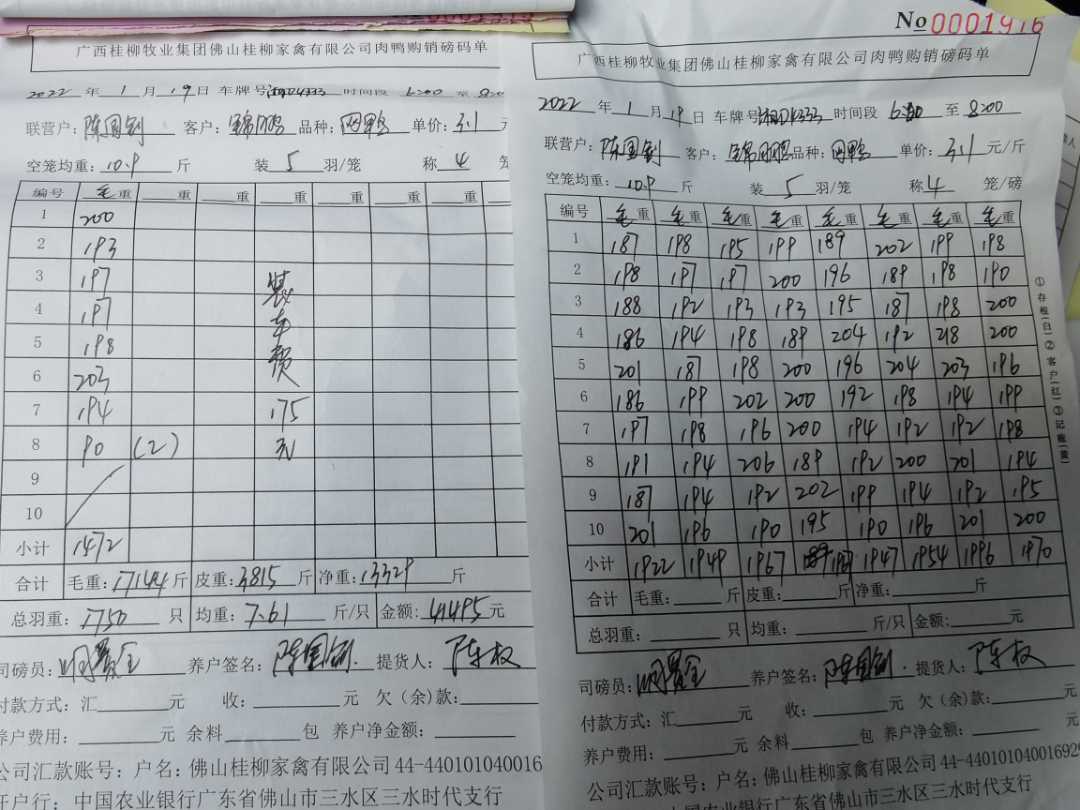 广西桂柳牧业集团佛山桂柳家禽有限公司肉鸭购销磅码单
2022 年 1 月 19 日 车牌号 湘D4333 时间段 6:00 至 8:00
联营户: 陈国钊 客户: 锦鹏 品种: 肉鸭 单价: 3.1
空笼均重: 10.9 斤 装 5 羽/笼 称 4 笼
编号 毛重 重 重 重 重 重 重
1 200
2 193
3 197 装
4 197 车
5 198
6 203 费
7 194 175
8 90 (2) 元
9
10
小计 1472
合计 毛重: 17144 斤 皮重: 3815 斤 净重: 13329 斤
总羽重: 1750 只 均重: 7.61 斤/只 金额: 41495 元
司磅员: 养户签名: 陈国钊 提货人: 陈权
付款方式: 汇 元 收: 元 欠(余)款:
养户费用: 元 余料 包 养户净金额:
公司汇款账号: 户名: 佛山桂柳家禽有限公司 44-440101040016
开户行: 中国农业银行广东省佛山市三水区三水时代支行
No 0001916
广西桂柳牧业集团佛山桂柳家禽有限公司肉鸭购销磅码单
2022 年 1 月 19 日 车牌号 湘D4333 时间段 6:00 至 8:00
联营户: 陈国钊 客户: 锦鹏 品种: 肉鸭 单价: 3.1 元/斤
空笼均重: 10.9 斤 装 5 羽/笼 称 4 笼/磅
编号 毛重 毛重 毛重 毛重 毛重 毛重 毛重 毛重
1 187 198 195 199 189 202 199 198
2 198 197 197 200 196 189 198 190
3 188 192 193 193 195 187 198 200
4 186 194 198 189 204 192 218 200
5 201 187 198 200 196 204 203 196
6 186 199 202 200 192 198 194 199
7 197 198 196 200 194 192 192 198
8 191 194 206 189 192 200 201 194
9 187 194 192 202 199 194 192 195
10 201 196 190 195 190 196 201 200
小计 1922 1949 1967 1947 1954 1996 1970
合计 毛重: 斤 皮重: 斤 净重: 斤
总羽重: 只 均重: 斤/只 金额: 元
司磅员: 养户签名: 陈国钊 提货人: 陈权
付款方式: 汇 元 收: 元 欠(余)款:
养户费用: 元 余料 包 养户净金额: 元
公司汇款账号: 户名: 佛山桂柳家禽有限公司 44-4401010400169
中国农业银行广东省佛山市三水区三水时代支行
①存根(白)②客户(红)③记账(黄)